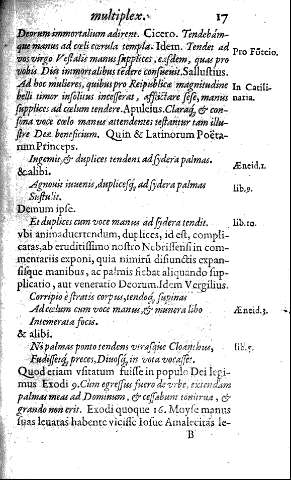 multiplex. 17
Deorum immortalium adirent. Cicero. Tendebám-
que manus ad cœli cœrula templa. Idem. Tendet ad Pro Fōteio.
vos virgo Vestalis manus supplices, easdem, quas pro
vobis Diis immortalibus tēdere consuevit. Sallustius.
Ad hoc mulieres, quibus pro Reipublicæ magnitudine In Catili-
belli timor insolitus incesserat, afflictare sese, manus naria.
supplices ad cœlum tendere. Apuleius. Claraq́; & con-
sona voce cœlo manus attendentes testantur tam illu-
stre Deæ beneficium. Quin & Latinorum Poëta-
rum Princeps.
Ingemit, & duplices tendens ad sydera palmas. Æneid.1.
& alibi.
Agnouit iuuenis, duplicesq́; ad sydera palmas lib.9.
Sustulit.
Demum ipse.
Et duplices cum voce manus ad sydera tendit. lib.10.
vbi animaduertendum, duplices, id est, compli-
catas, ab eruditissimo nostro Nebrissensi in com-
mentariis exponi, quia nimirũ disiunctis expan-
sisque manibus, ac palmis fiebat aliquando sup-
plicatio, aut veneratio Deorum. Idem Vergilius.
Corripio è stratis corpus, tendoq́; supinas
Ad cœlum cum voce manus, & munera libo Æneid.3.
Intemerata focis.
& alibi.
Ni palmas ponto tendens vtrasque Cloanthus, lib.5.
Fudissetq́; preces, Diuosq́; in vota vocasset.
Quod etiam vsitatum fuisse in populo Dei legi-
mus Exodi 9. Cum egressus fuero de vrbe, extendam
palmas meas ad Dominum, & cessabunt tonitrua, &
grando non erit. Exodi quoque 16. Moyse manus
suas leuatas habente vicisse Iosue Amalecitas le-
B